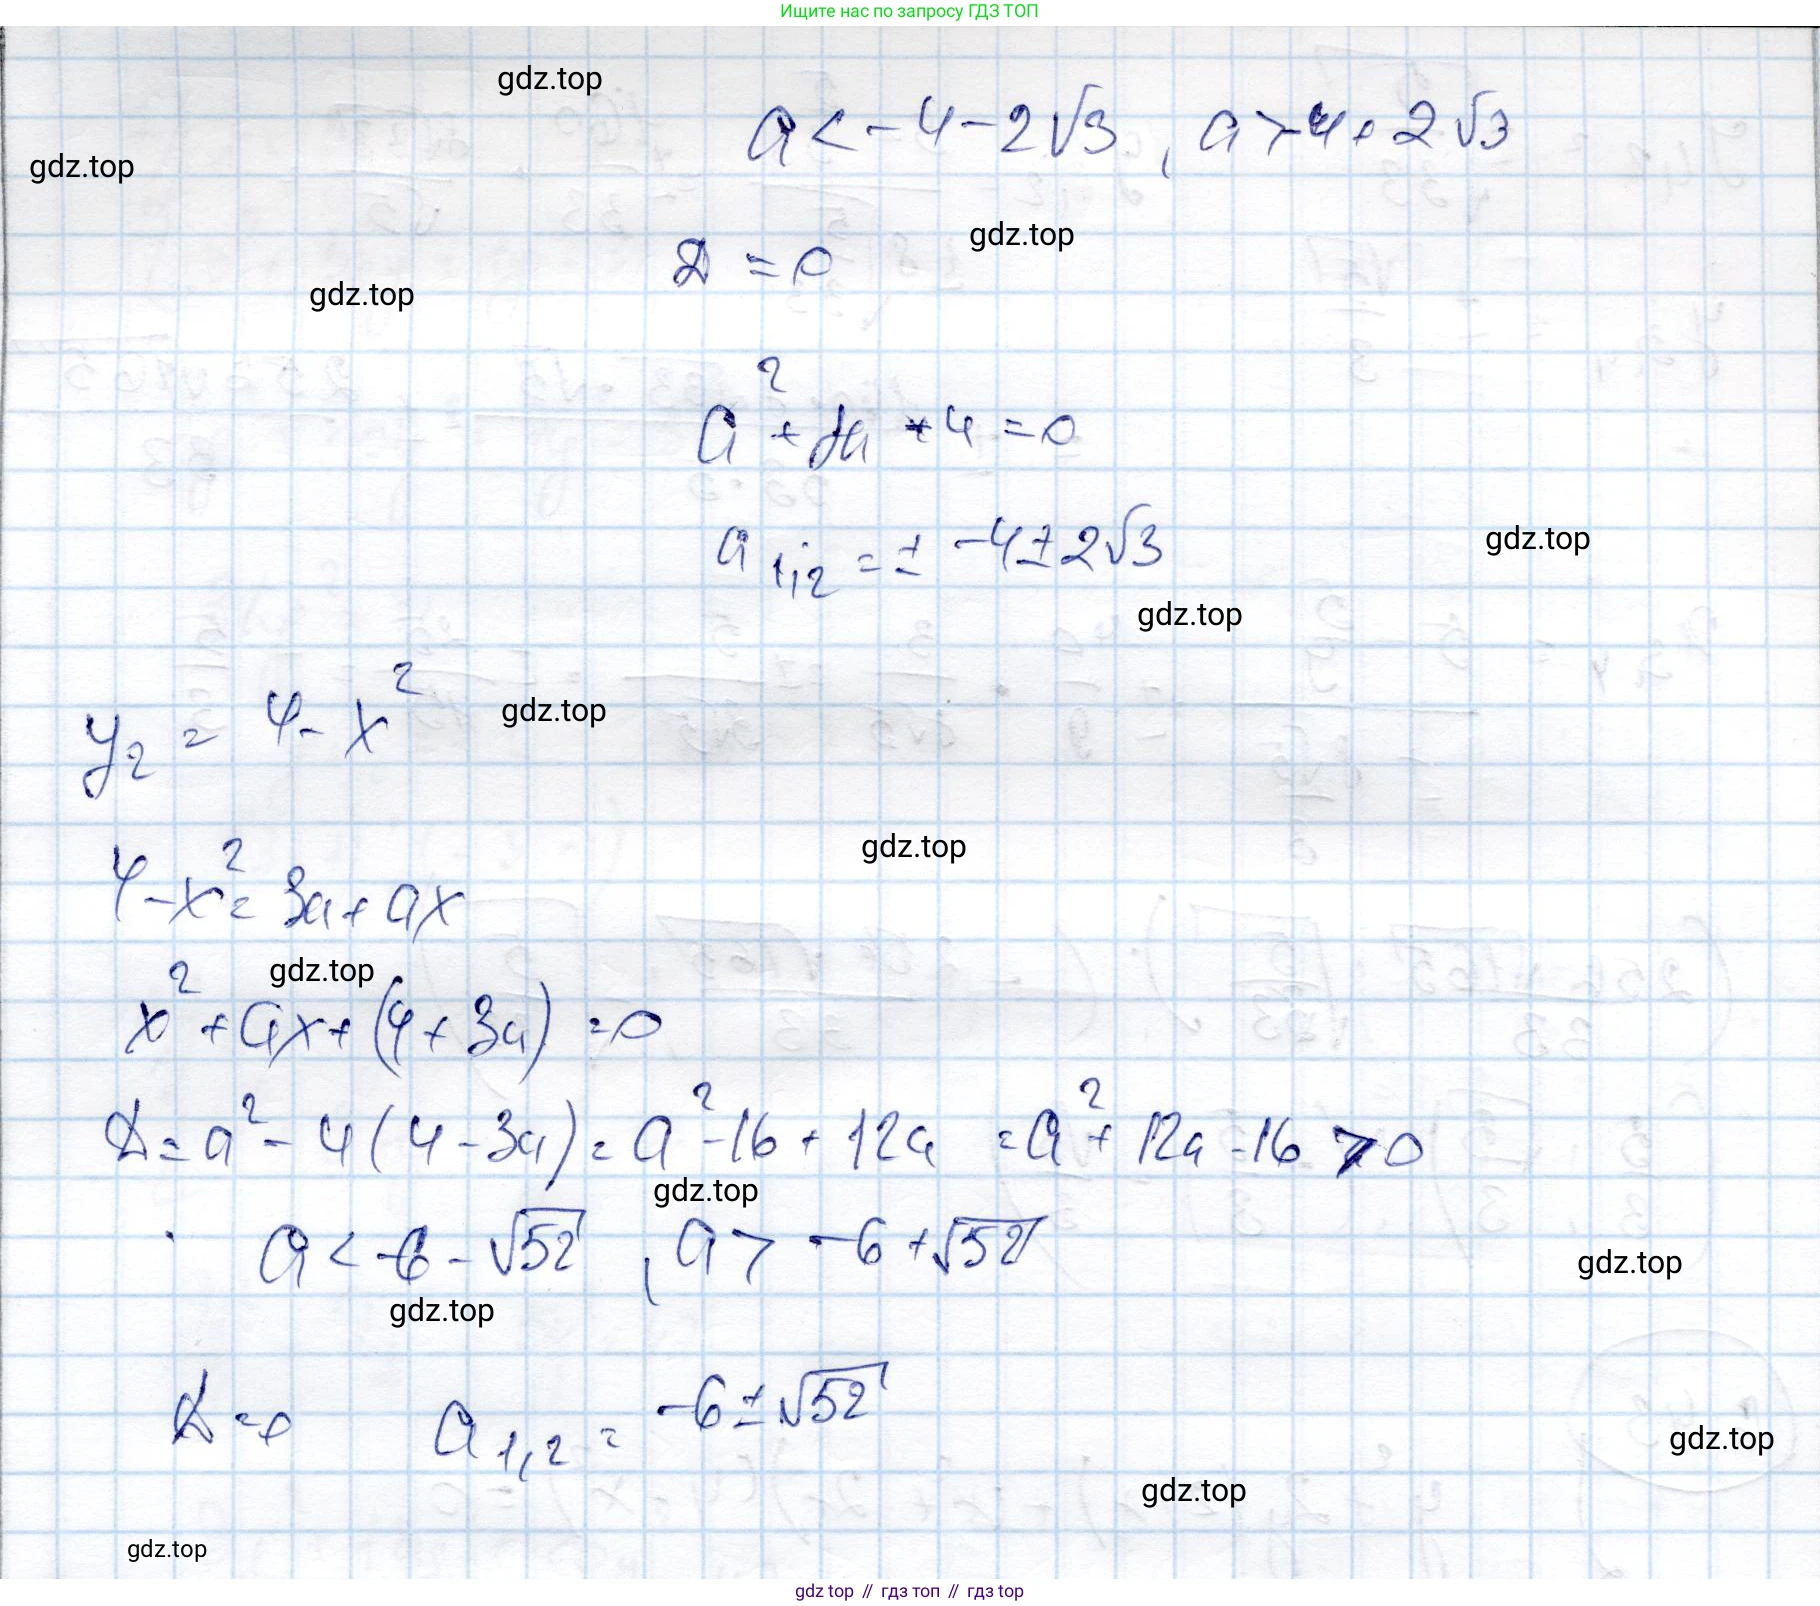 Ищите нас по запросу ГДЗ ТОП
gdz.top
a < -4 - 2√3 , a > -4 + 2√3
gdz.top
gdz.top
D = 0
gdz.top
a² + 8a + 4 = 0
a₁,₂ = ± -4 ± 2√3
gdz.top
gdz.top
y₂ = 4 - x²
gdz.top
gdz.top
4 - x² = 3a + ax
gdz.top
x² + ax + (4 + 3a) = 0
D = a² - 4(4 - 3a) = a² - 16 + 12a = a² + 12a - 16 > 0
gdz.top
a < -6 - √52 , a > -6 + √52
gdz.top
gdz.top
D = 0 a₁,₂ = -6 ± √52
gdz.top
gdz.top
gdz.top
gdz top // гдз топ // gdz top